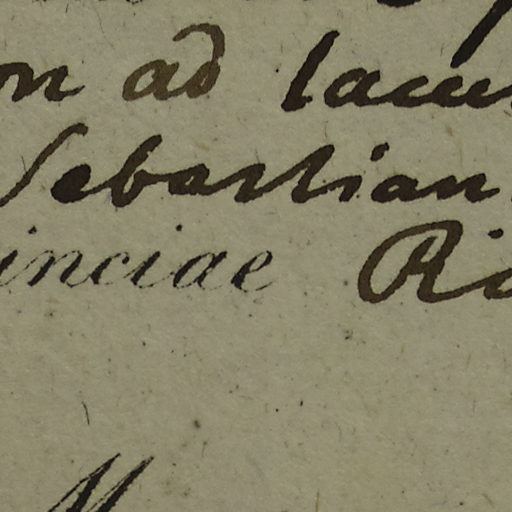 on ad lacu
Sebastian
inciae Ri
M